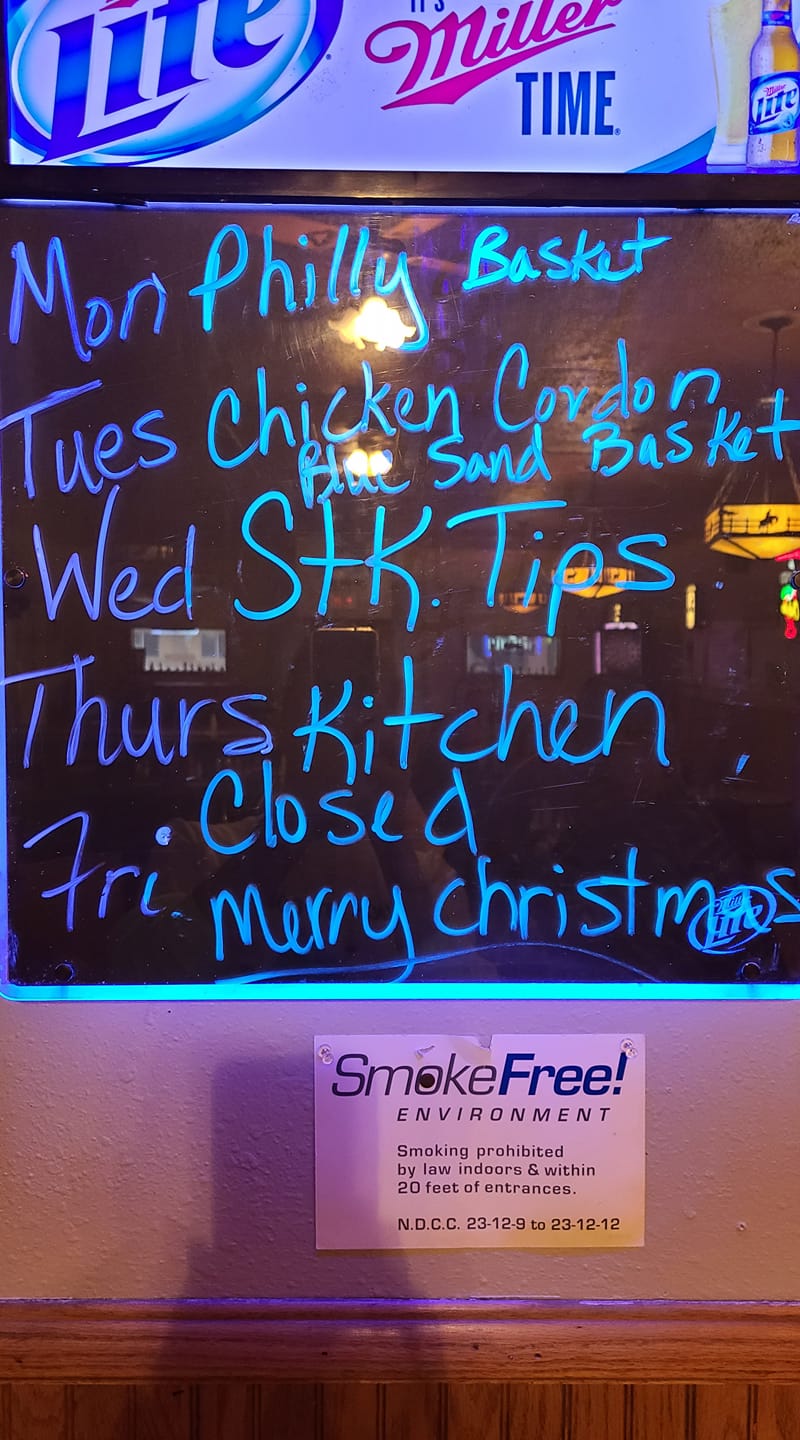 Lite
IT'S
Miller
TIME
Miller
Lite
Mon Philly Basket
Tues Chicken Cordon
Blue Sand Basket
Wed Stk. Tips
Thurs Kitchen
Closed
Fri. Merry Christmas
Lite
SmokeFree!
ENVIRONMENT
Smoking prohibited
by law indoors & within
20 feet of entrances.
N.D.C.C. 23-12-9 to 23-12-12